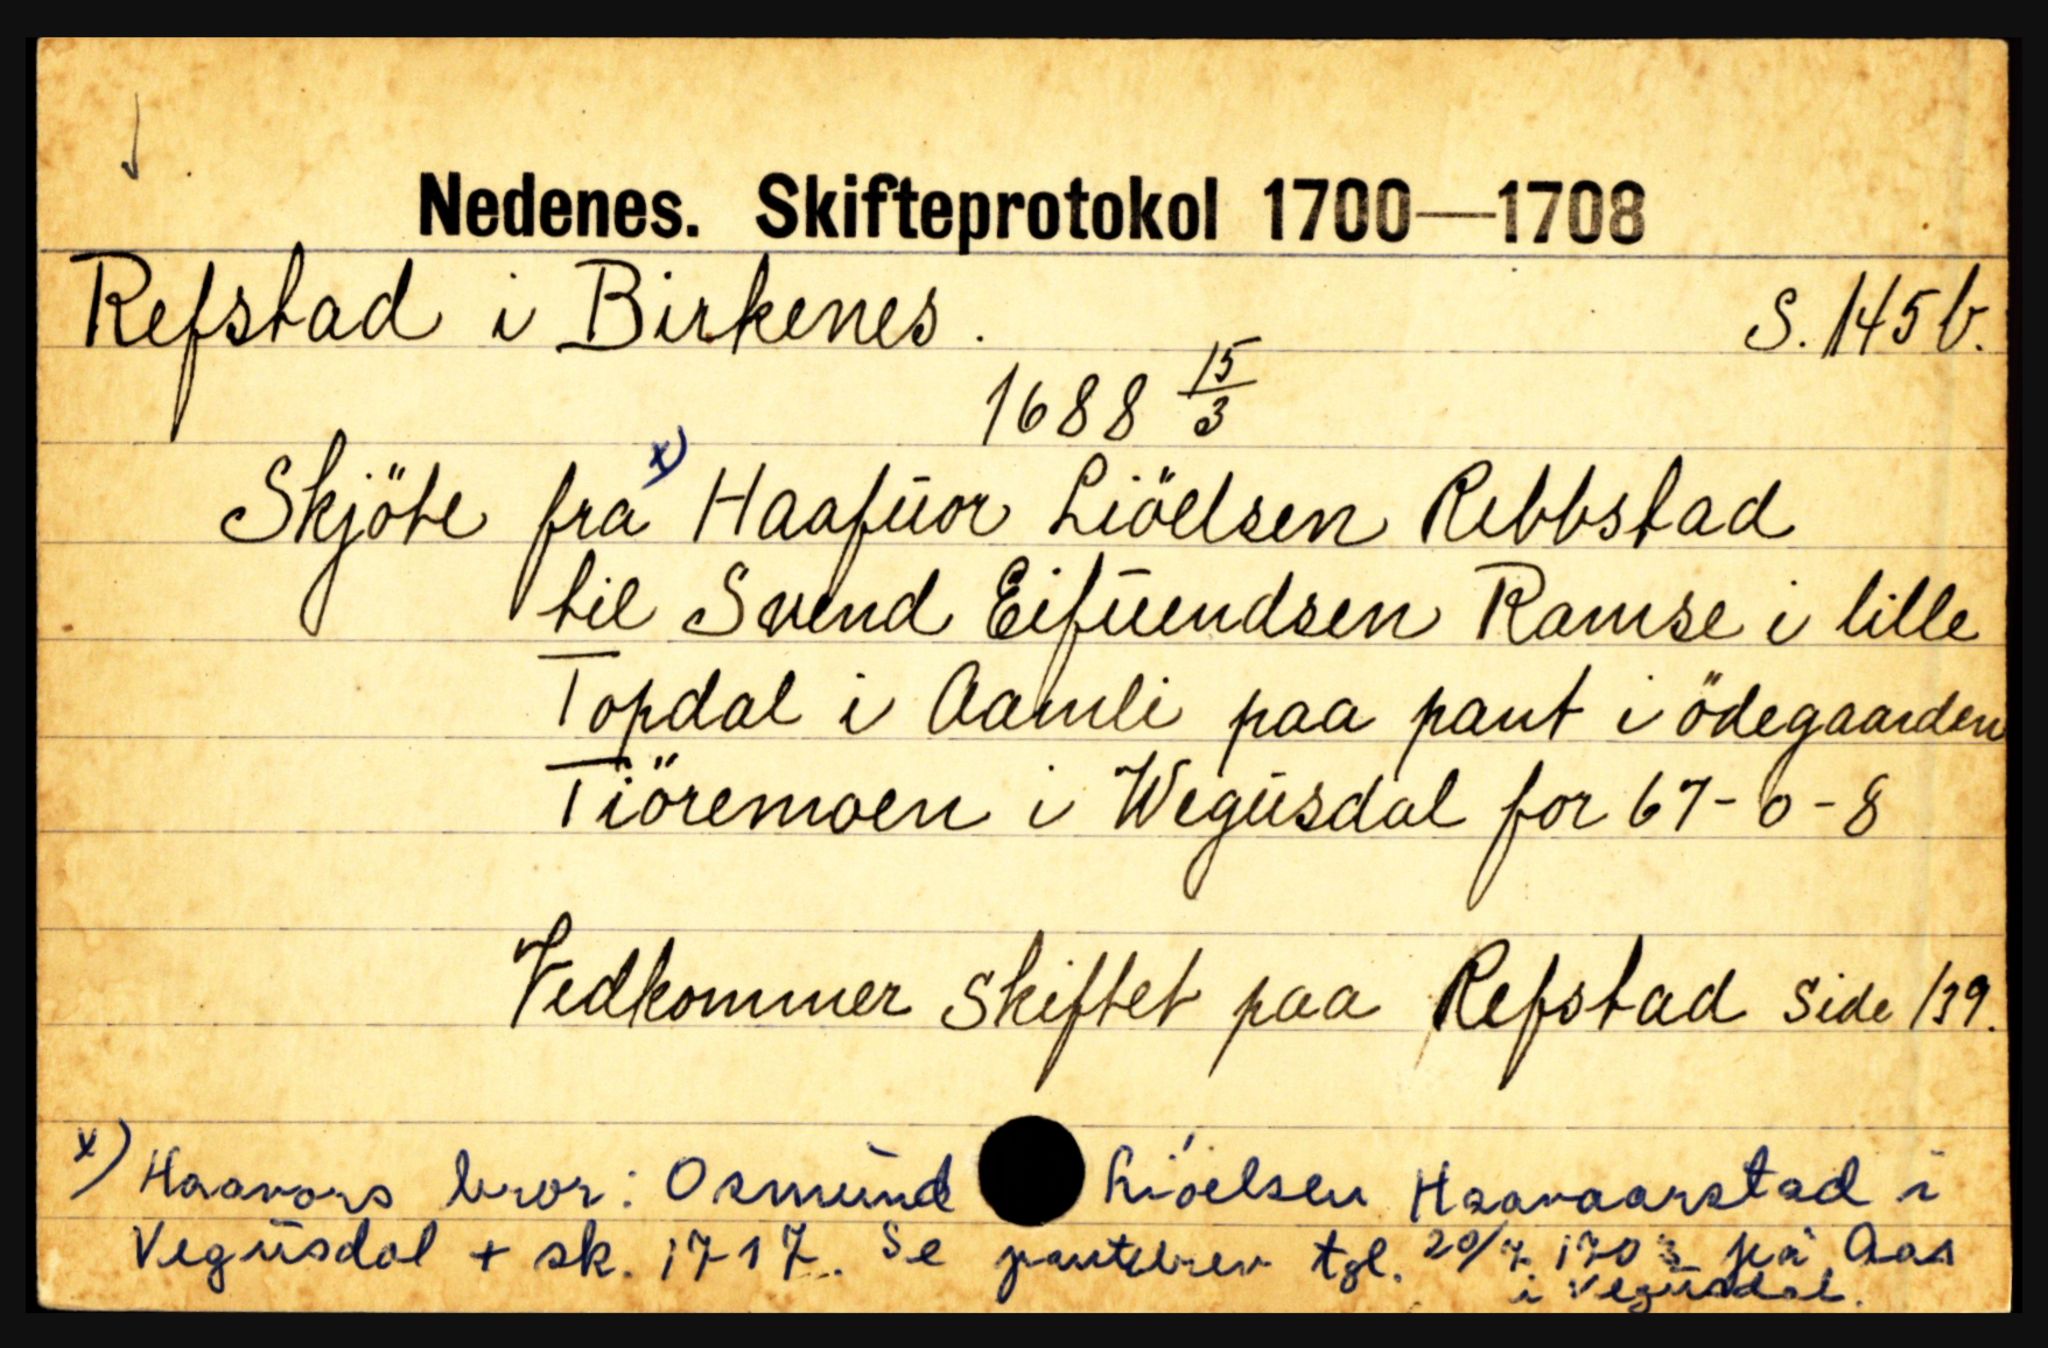 Nedenes. Skifteprotokol 1700—1708
Refstad i Birkenes. S. 145 b.
1688 15/3
Skjöte fra x) Haafŭor Liöelsen Rebbstad
til Svend Eifŭendsen Ramse i lille
Topdal i Aamli paa pant i ödegaarden
Tiöremoen i Wegŭsdal for 67-0-8
Vedkommer skiftet paa Refstad side 139.
x) Haavors bror: Osmŭnd Liöelsen Haavaarstad i
Vegŭsdal + sk. 1717. Se pantebrev tgl. 20/7 1703 på Aas
i Vegŭsdal.